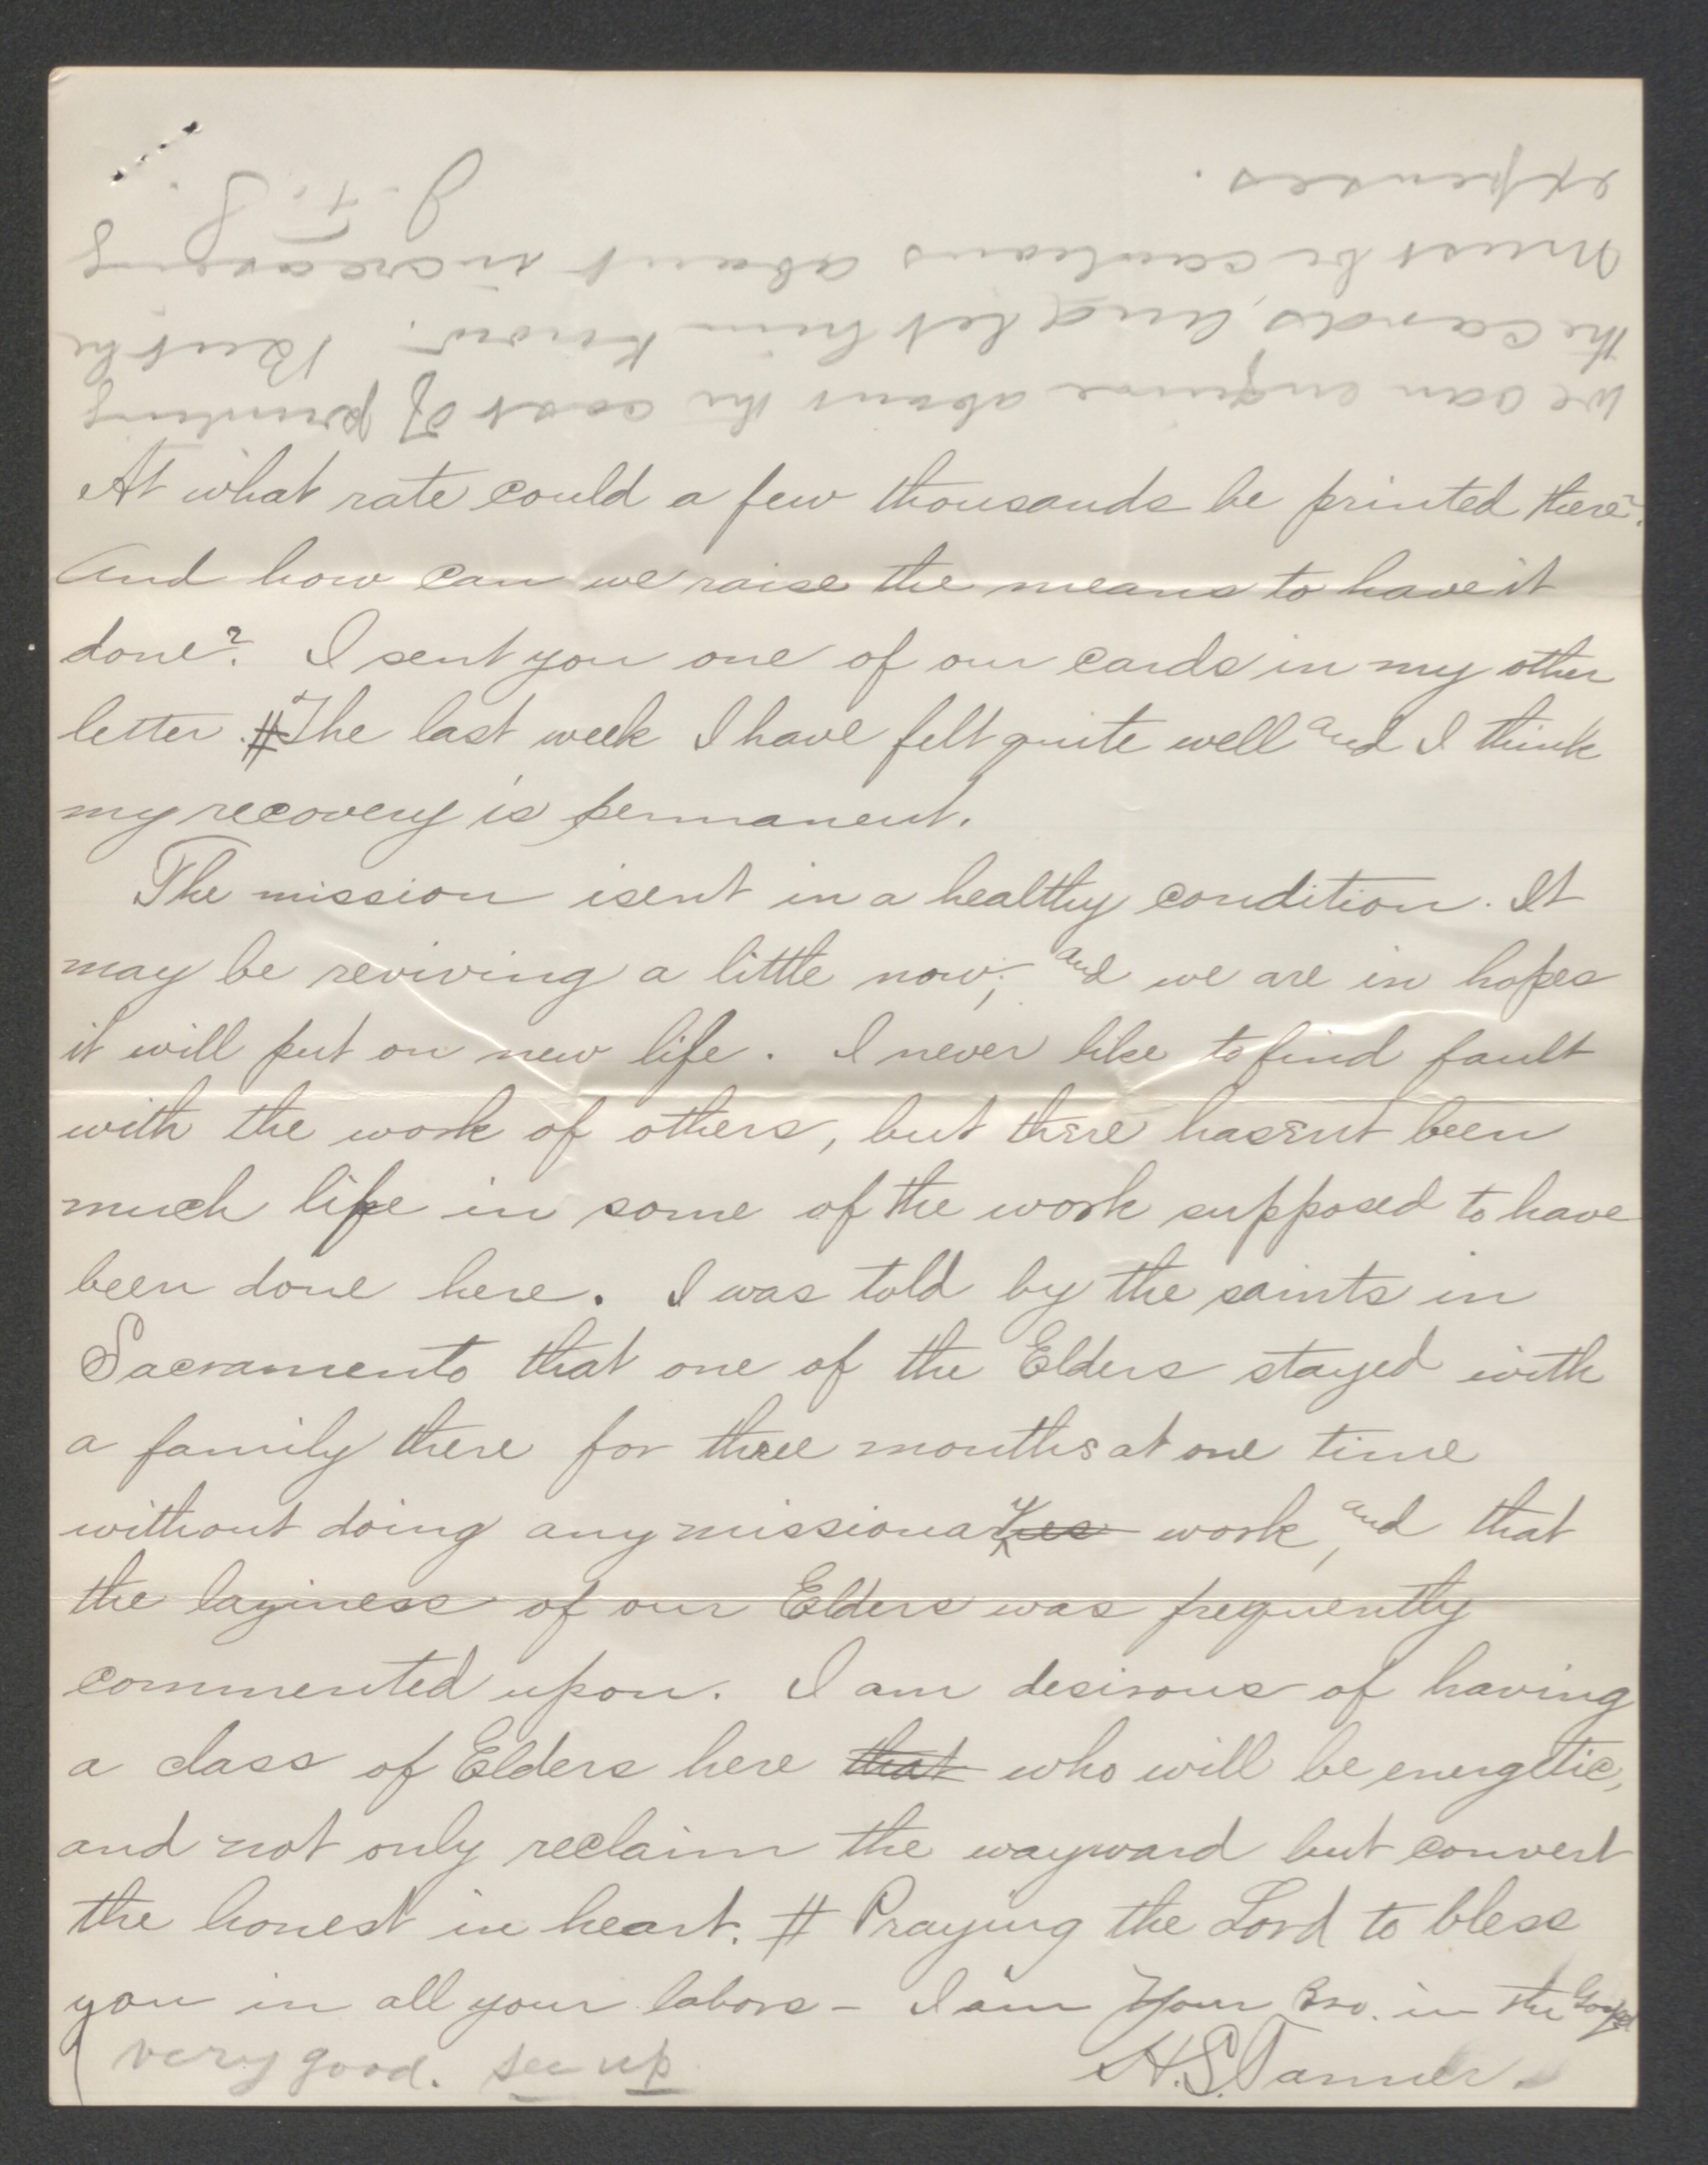 At what rate could a few thousands be printed there?
And how can we raise the means to have it
done? I sent you one of our cards in my other
letter. # The last week I have felt quite well and I think
my recovery is permanent.
The mission isent in a healthy condition. It
may be reviving a little now; and we are in hopes
it will put on new life. I never like to find fault
with the work of others, but there hasent been
much life in some of the work supposed to have
been done here. I was told by the saints in
Sacramento that one of the Elders stayed with
a family there for three months at one time
without doing any missionary work, and that
the laziness of our Elders was frequently
commented upon. I am desirous of having
a class of Elders here that who will be energetic,
and not only reclaim the wayward but convert
the honest in heart. # Praying the Lord to bless
you in all your labors - I am Your Bro. in the Gospel
H. S. Tanner.
very good. see up
We can enquire about the cost of printing
the cards, and let him know. But he
must be cautious about increasing
expenses.
J. F. S.